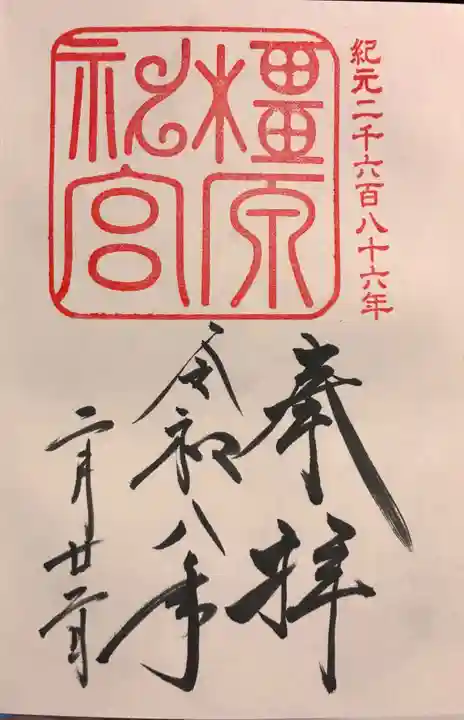 紀元二千六百八十六年
橿原
神宮
奉拝
令和八年
二月廿二日